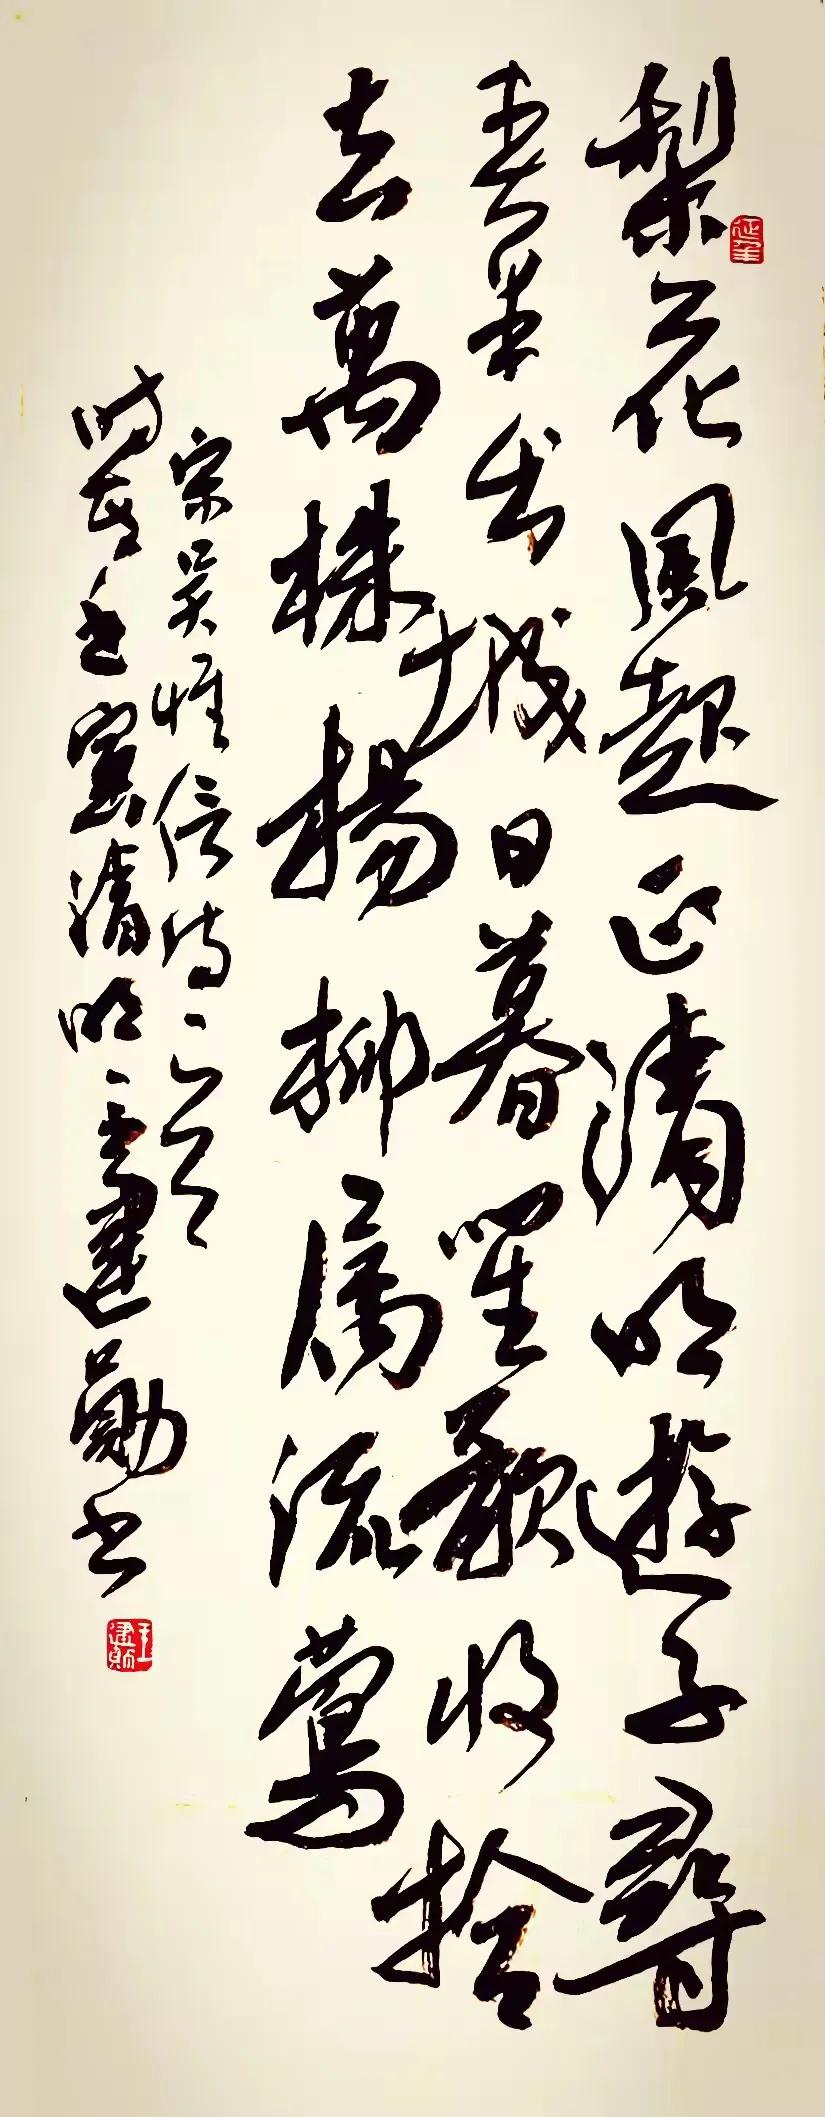 梨花風起正清明遊子尋
春半出城日暮笙歌收拾
去萬株楊柳屬流鶯
宋吳惟信詩一首
時寅清明王建勳書